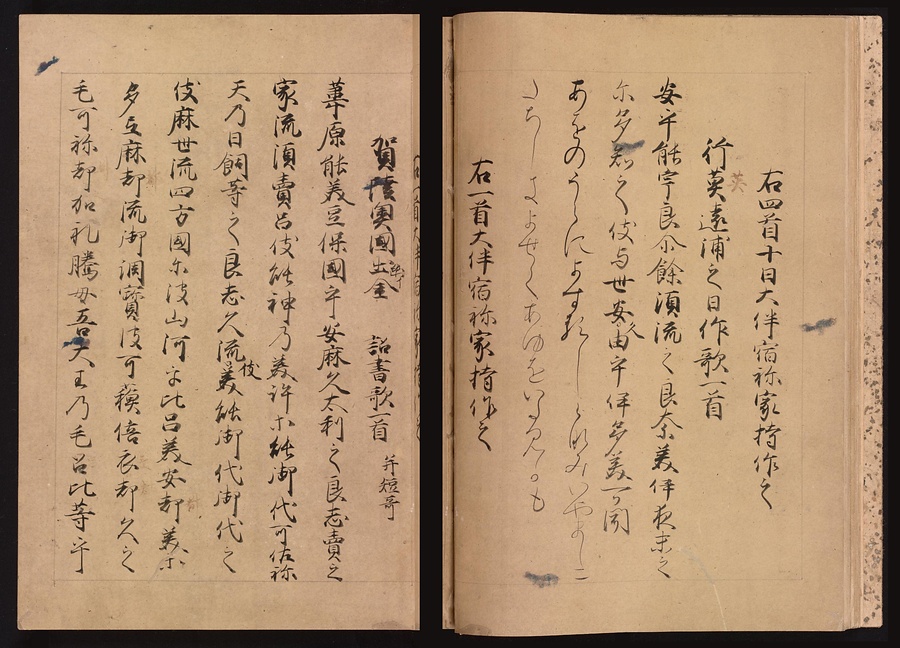 右四首十日大伴宿祢家持作之
行英遠浦之日作歌一首
英
安乎能宇良尓餘須流之良奈美伊夜末之
尓多知之伎与世久安由乎伊多美可聞
あをのうらによするしらなみいやましに
たちしきよせくあゆをいたみかも
右一首大伴宿祢家持作之
賀陸奥國出金詔書歌一首 并短哥
葦原能美豆保國乎安麻久太利之良志賣之
家流須賣呂伎能神乃美許等能御代可佐祢
天乃日嗣等之良志久流伎美能御代御代之
伎麻世流四方國尓波山河乎比呂美安都美等
多弖麻都流御調寶波可蘇倍衣都久之
毛可祢都加礼騰毋吾大王乃毛呂比等乎